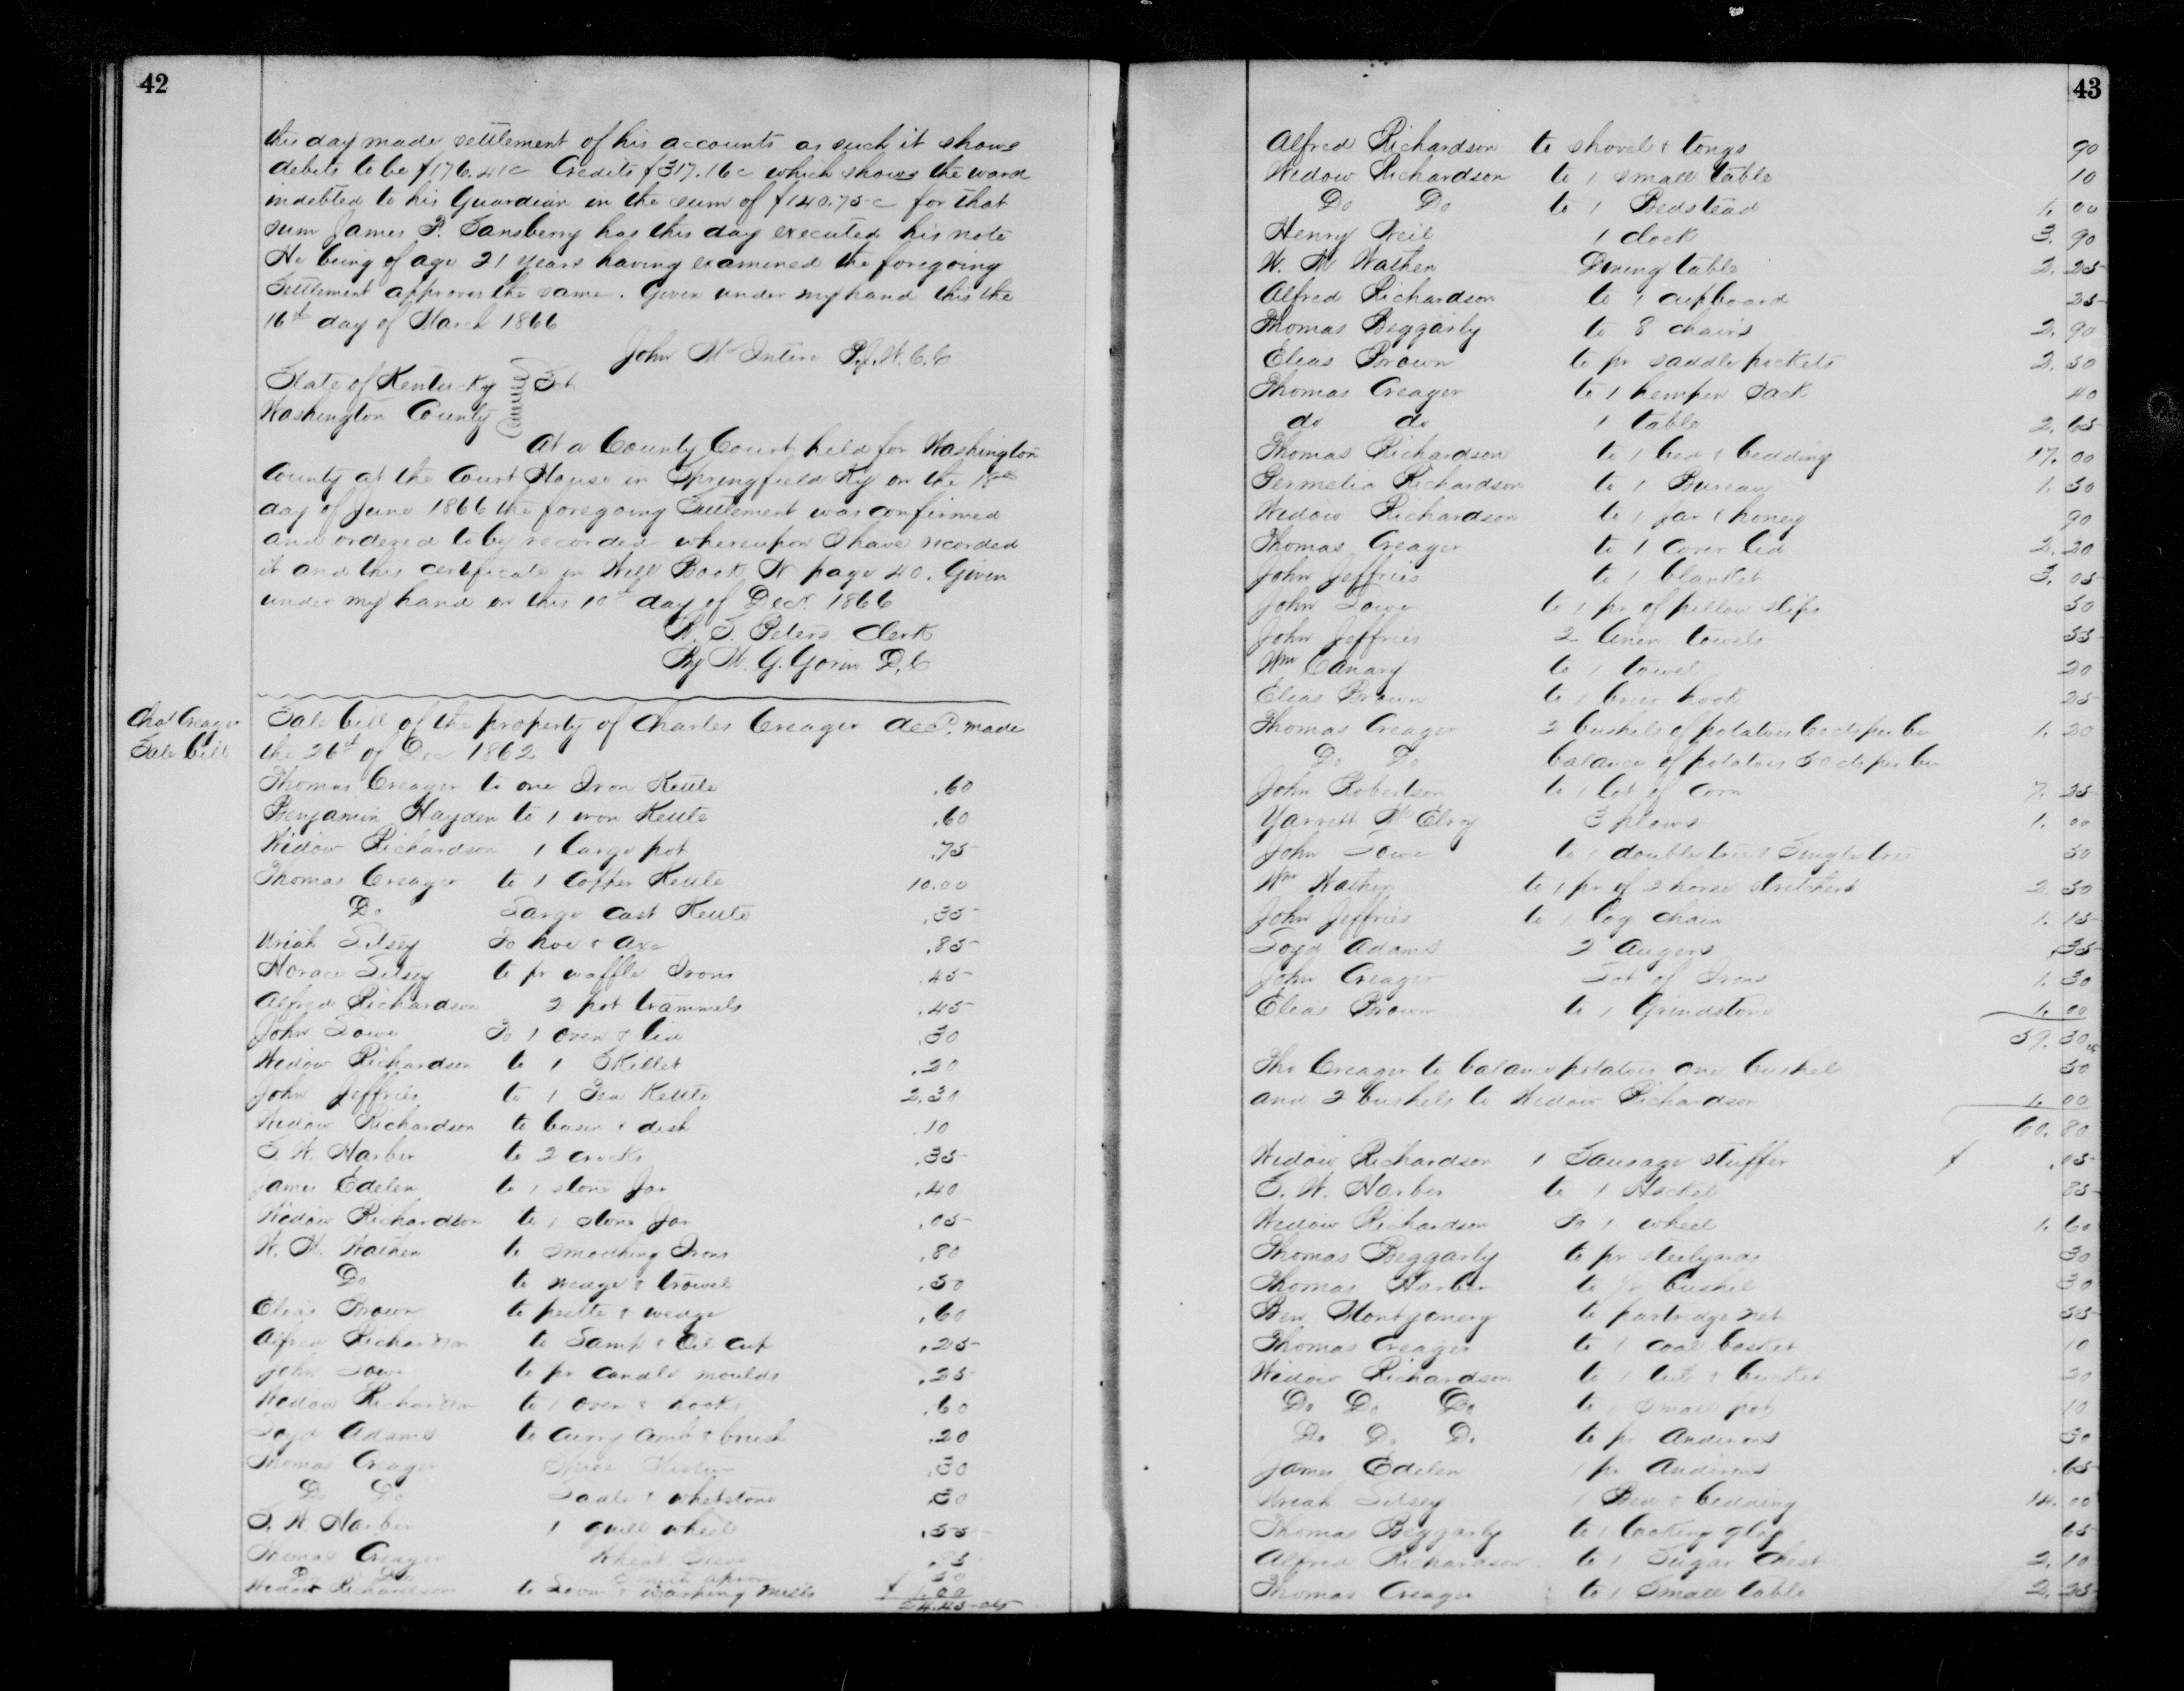 42
this day made settlement of his accounts as such it shows
debits to be $176.41c Credits $317.16c which shows the ward
indebted to his Guardian in the sum of $140.75c for that
sum James P. Sansberry has this day executed his note
He being of age 21 years having examined the foregoing
Settlement approves the same. Given under my hand this the
16th day of March 1866
John McIntire P.J.W.C.C
State of Kentucky Sct
Washington County
At a County Court held for Washington
County at the Court House in Springfield Ky on the 18th
day of June 1866 the foregoing Settlement was confirmed
and ordered to by recorded whereupon I have recorded
it and this certificate in Will Book N page 40. Given
under my hand on this 10th day of Decr 1866
W. S. Peters Clerk
By W. G. Gorin D.C
Chas Creager
Sale bill
Sale bill of the property of Charles Creager decd. made
the 26th of Dec 1862
Thomas Creager to one Iron Kettle .60
Benjamin Hayden to 1 iron Kettle .60
Widow Richardson 1 large pot .75
Thomas Creager to 1 Copper Kettle 10.00
Do Large cast Kettle .35
Uriah Lilsey To hoe & Axe .85
Horace Lilsey to pr waffle Irons .45
Alfred Richardson 2 pot trammels .45
John Lowe To 1 oven & lid .30
Widow Richardson to 1 Skillet .20
John Jeffries to 1 Tea Kettle 2.30
Widow Richardson to basin & dish .10
S. W. Harber to 2 crocks .35
James Edelen to 1 stone Jar .40
Widow Richardson to 1 stone Jar .05
W. H. Wathen to smoothing Irons .80
Do to wedge & trowel .50
Elias Brown to pestle & wedge .60
Alfred Richardson to Lamp & Oil cup .25
John Lowe to pr candle moulds .25
Widow Richardson to 1 oven & hooks .60
Loyd Adams to curry comb & brush .20
Thomas Creager .30
Do Do & whetstone .30
S. W. Harber 1 quill wheel .55
Thomas Creager Wheat Sieve
Do Do apron 50
Widow Richardson to Loom & warping mills $1.00
24.45 cts
43
Alfred Richardson to shovel & tongs 90
Widow Richardson to 1 small table 10
Do Do to 1 Bedstead 1.00
Henry Neil 1 clock 3.90
W. H Wathen Dining table 2.25
Alfred Richardson to 1 cupboard 25
Thomas Beggarly to 8 chairs 2.90
Elias Brown to pr saddle pockets 2.50
Thomas Creager to 1 hempen Sack 40
do do 1 table 2.65
Thomas Richardson to 1 bed & bedding 17.00
Permelia Richardson to 1 Bureau 1.50
Widow Richardson to 1 jar & honey 90
Thomas Creager to 1 Cover lid 2.20
John Jeffries to 1 blanket 3.05
John Lowe to 1 pr of pillow slips 50
John Jeffries 2 linen towels 55
Wm Canary to 1 towel 20
Elias Brown to 1 brier hook 25
Thomas Creager 2 bushels of potatoes 60 cts per bu 1.20
Do Do balance of potatoes 50 cts per bu
John Robertson to 1 lot of corn 7.25
Yarrett McElroy 3 plows 1.00
John Lowe to 1 double tree & Single tree 50
Wm Wathen to 1 pr of 2 horse stretchers 2.50
John Jeffries to 1 log chain 1.15
Loyd Adams 2 augers 35
John Creager Lot of Irons 1.30
Elias Brown to 1 Grindstone 1.00
59.30 cts
Tho Creager to balance potatoes one bushel 50
and 2 bushels to Widow Richardson 1.00
60.80
Widow Richardson 1 Sausage stuffer $ .05
S. W. Harber to 1 Hackel 85
Widow Richardson To 1 wheel 1.60
Thomas Beggarly to pr steelyards 30
Thomas Harber to bushel 30
Ben Montgomery to partridge net 55
Thomas Creager to 1 coal basket 10
Widow Richardson to 1 & bucket 20
Do Do Do to 1 small pot 10
Do Do Do to pr Andirons 30
James Edelen 1 pr Andirons .65
Uriah Lilsey 1 Bed & bedding 14.00
Thomas Beggarly to 1 looking glass 65
Alfred Richardson to 1 Sugar Chest 2.10
Thomas Creager to 1 Small table 2.25